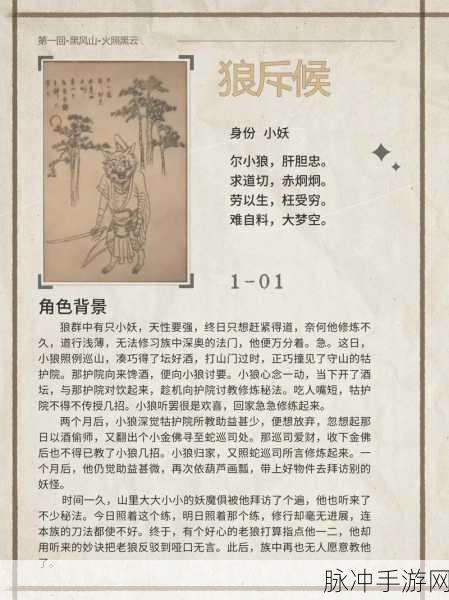 第一回·黑风山·火照黑云
狼斥候
身份 小妖
尔小狼，肝胆忠。
求道切，赤炯炯。
劳以生，枉受穷。
难自料，大梦空。
1-01
角色背景
狼群中有只小妖，天性要强，终日只想赶紧得道，奈何他修炼不
久，道行浅薄，无法修习族中深奥的法门，他便万分着。急。这日，
小狼照例巡山，凑巧得了坛好酒，打山门过时，正巧撞见了守山的牯
护院。那护院向来馋酒，便向小狼讨要。小狼心念一动，当下开了酒
坛，与那护院对饮起来，趁机向护院讨教修炼秘法。吃人嘴短，牯护
院不得不传授几招。小狼听罢很是欢喜，回家急急修炼起来。
两个月后，小狼深觉牯护院所教助益甚少，便想放弃，忽想起那
日以酒偷师，又翻出个小金佛寻至蛇巡司处。那巡司爱财，收下金佛
后也不得已教了小狼几招。小狼归家，又照蛇巡司所言修炼起来。一
个月后，他仍觉助益甚微，再次依葫芦画瓢，带上好物件去拜访别的
妖怪。
时间一久，山里大大小小的妖魔俱被他拜访了个遍，他也听来了
不少秘法。今日照着这个练，明日照着那个练，修行却毫无进展，连
本族的刀法都使不好。终于，有个好心的老狼打算指点他一二，他却
用听来的妙诀把老狼反驳到哑口无言。此后，族中再也无人愿意教他
了。
脉冲手游网